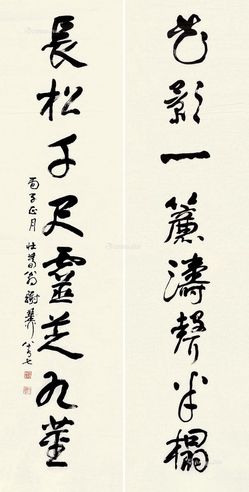 花影一簾濤聲半榻
長松千尺靈芝九莖
丙子正月 壯暮翁稚柳八十七